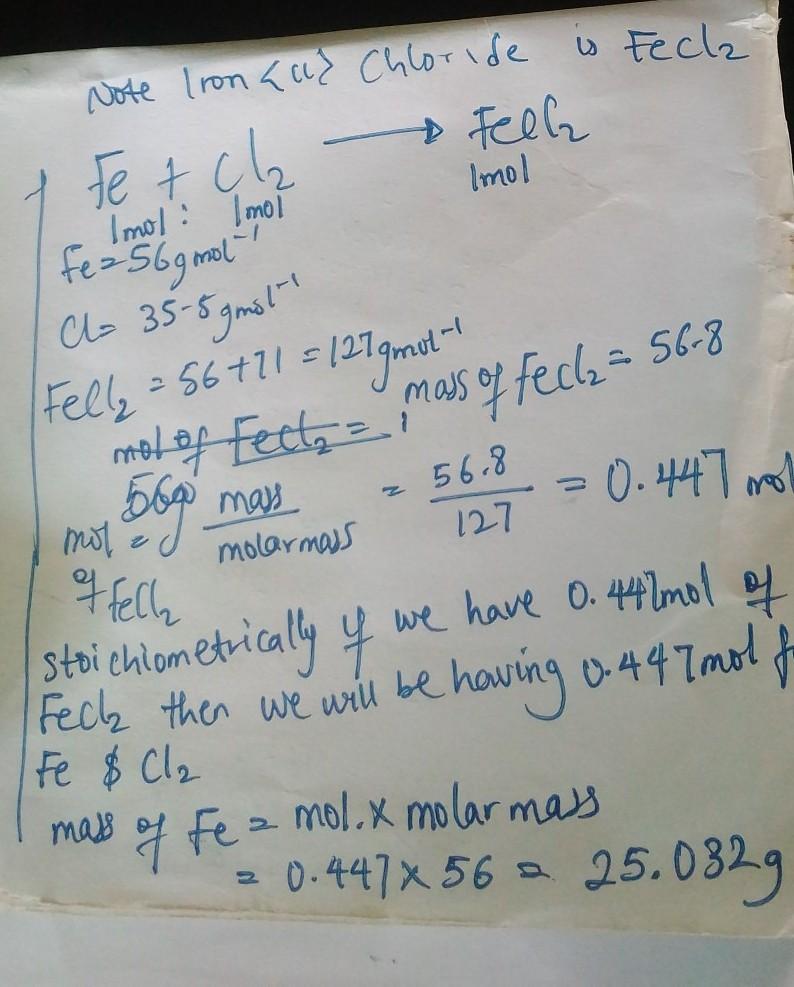 Note Iron <II> Chloride is FeCl2
Fe + Cl2 → FeCl2
1mol : 1mol 1mol
Fe = 56gmol⁻¹
Cl = 35-5gmol⁻¹
FeCl2 = 56+71 = 127gmol⁻¹
mass of FeCl2 = 56.8
mol of FeCl2 =
56g
mol = mass/molarmass = 56.8/127 = 0.447 mol
of FeCl2
stoichiometrically if we have 0.447mol of
FeCl2 then we will be having 0.447mol f
Fe $ Cl2
mass of Fe = mol. x molar mass
= 0.447 x 56 = 25.032g